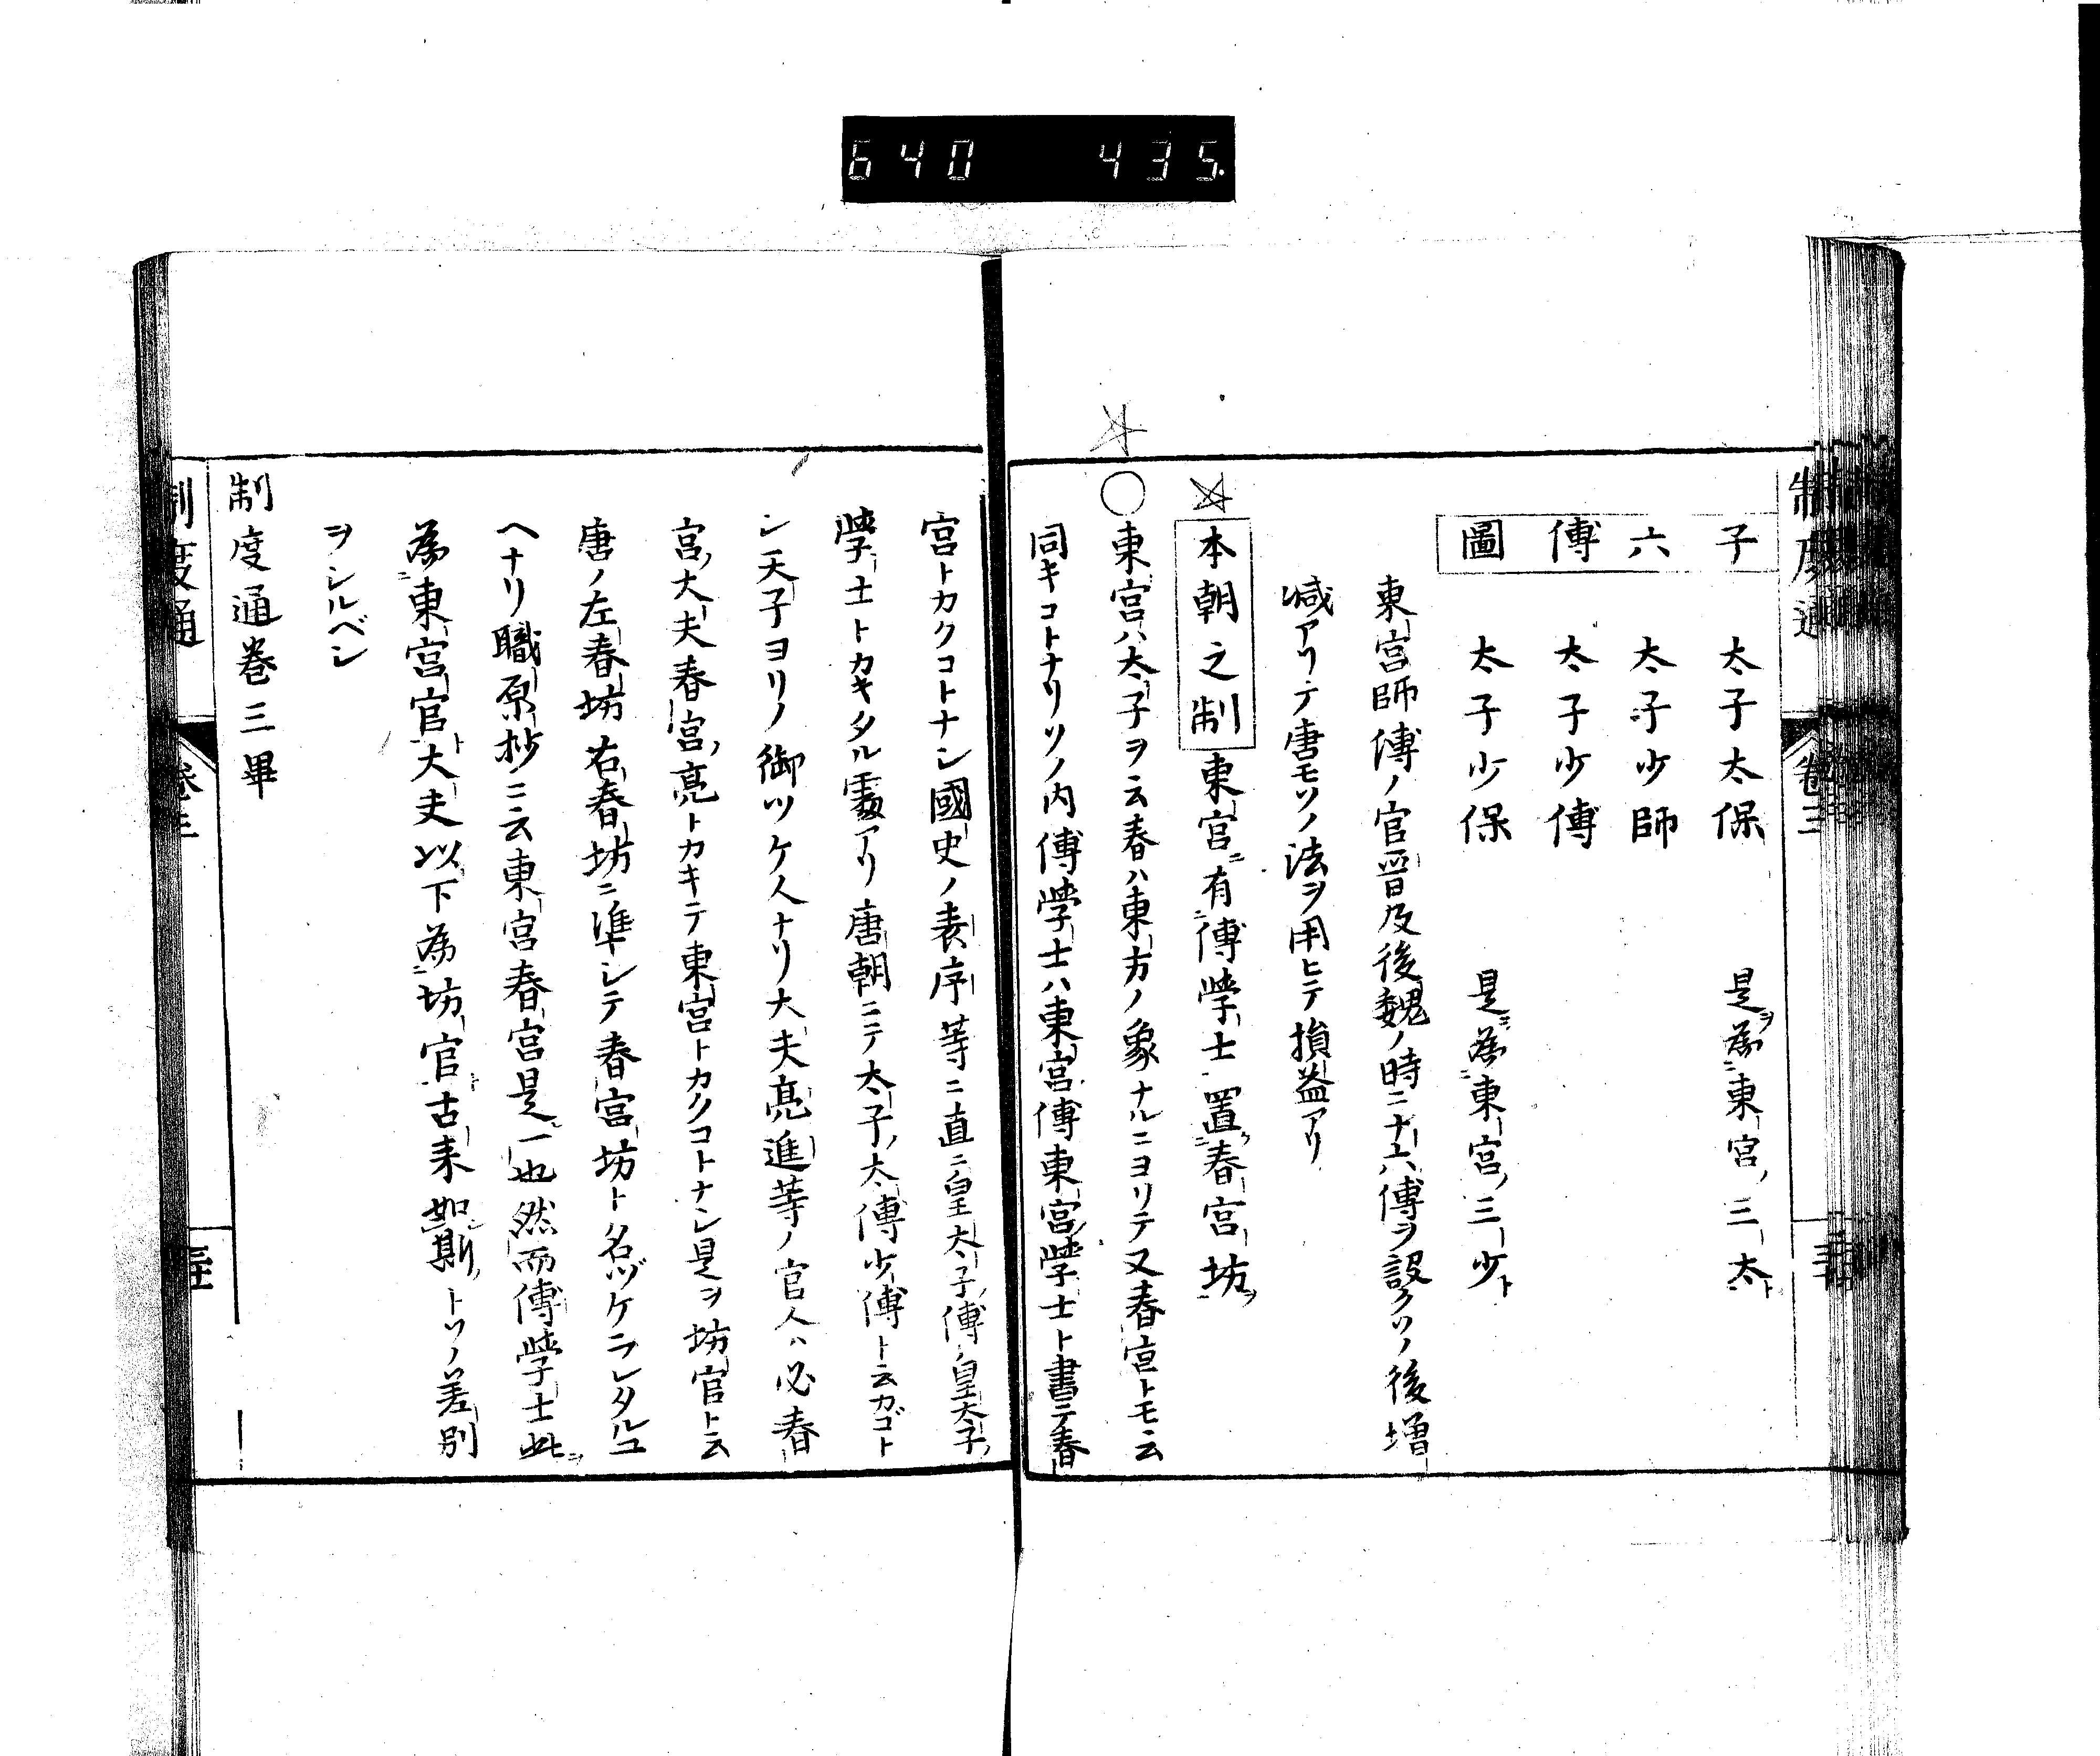 640 435.
制度通 卷三
子 太子太保 是ヲ為ニ東宮ノ三太ト
六 太子少師
傅 太子少傅
圖 太子少保 是ヲ為ニ東宮ノ三少ト
東宮師傅ノ官晋及後魏ノ時ニ十六傅ヲ設クソノ後増
減アリテ唐モソノ法ヲ用ヒテ損益アリ
本朝之制 東宮ニ有傅學士置春宮坊ヲ
○東宮ハ太子ヲ云春ハ東方ノ象ナルニヨリテ又春宮トモ云
同キコトナリソノ内傅學士ハ東宮傅東宮學士ト書テ春
宮トカクコトナシ國史ノ表序等ニ直ニ皇太子ノ傅ノ皇太子ノ
學士トカキタル處アリ唐朝ニテ太子ノ太傅少傅ト云カゴト
シ天子ヨリノ御ツケ人ナリ大夫亮進等ノ官人ハ必春
宮ノ大夫春宮ノ亮トカキテ東宮トカクコトナシ是ヲ坊官ト云
唐ノ左春坊右春坊ニ準シテ春宮坊ト名ヅケラレタルユ
ヘナリ職原抄ニ云東宮春宮是一也然而傅學士此ヲ
為ニ東宮官ト大夫以下為ニ坊官古来如斯トソノ差別
ヲシルベシ
制度通卷三畢
制度通 卷三